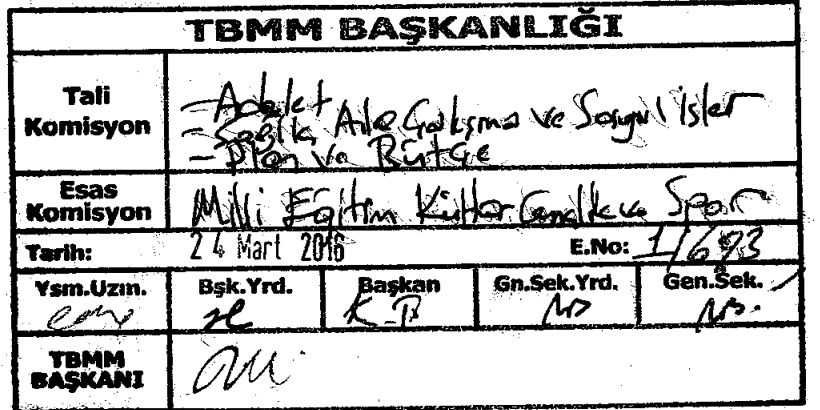 TBMM BAŞKANLIĞI
Tali Komisyon
- Adalet
- Sağlık Aile Çalışma ve Sosyal İşler
- Plan ve Bütçe
Esas Komisyon
Milli Eğitim Kültür Gençlik ve Spor
Tarih: 24 Mart 2016 E.No: 1/693
Ysm.Uzm. Bşk.Yrd. Başkan Gn.Sek.Yrd. Gen.Sek.
K-B
TBMM BAŞKANI